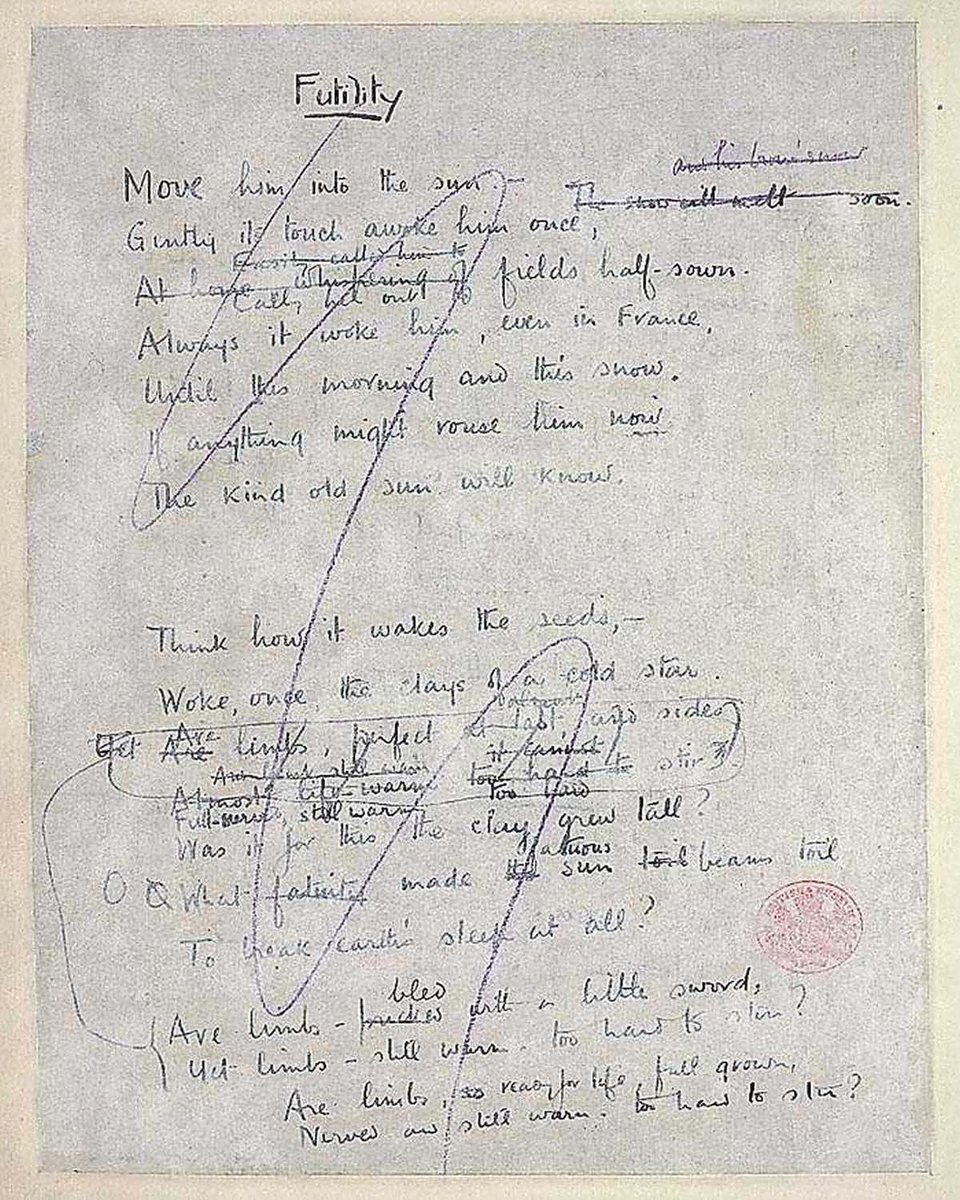 Futility
and his
Move him into the sun,—
The snow will melt soon.
Gently its touch awoke him once,
call him to
At home whispering of fields half-sown.
Call, out
Always it woke him, even in France,
Until this morning and this snow.
If anything might rouse him now
The kind old sun will know.
Think how it wakes the seeds,—
Woke, once, the clays of a cold star.
Are
Yet Are limbs, perfect at last and sides
still warm it cannot
Almost life-warm too hard to stir?
Full-nerved, still warm too hard
Was it for this the clay grew tall?
fatuous
O What fatuity made the sun toil beams toil
To break earth's sleep at all?
bled
Are limbs - pricked with a little sword,
Yet limbs - still warm - too hard to stir?
Are limbs, so ready for life, full grown,
Nerved and still warm - too hard to stir?